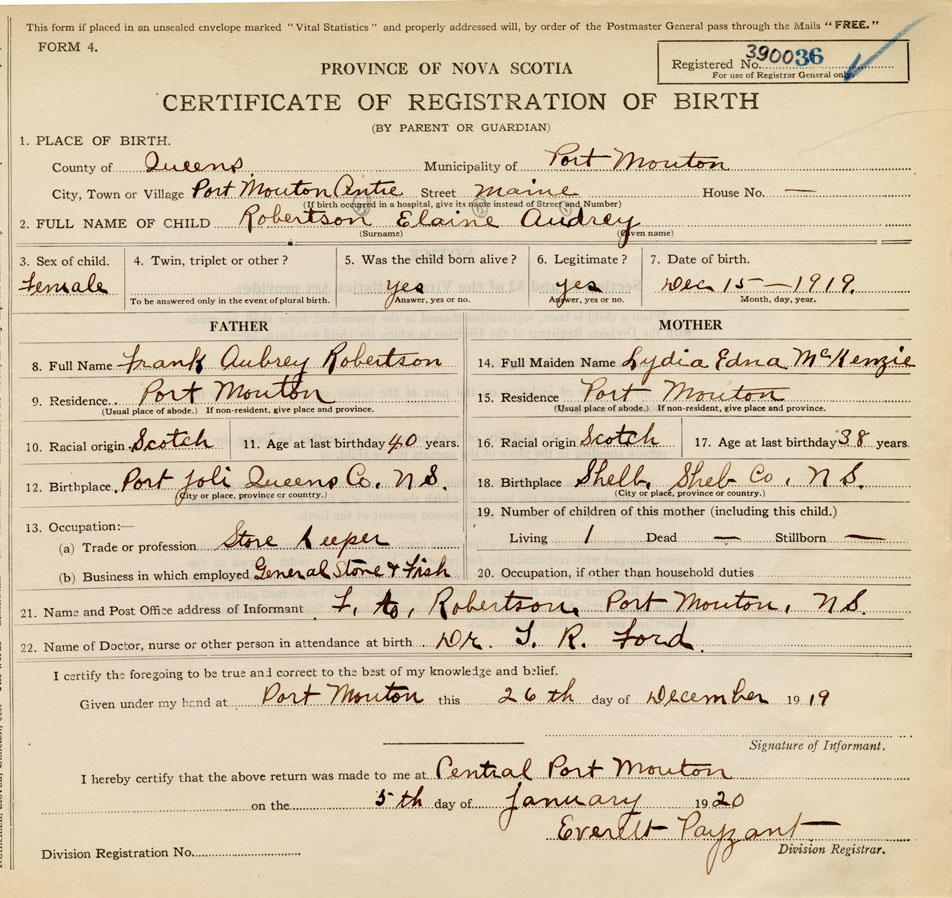 This form if placed in an unsealed envelope marked "Vital Statistics" and properly addressed will, by order of the Postmaster General pass through the Mails "FREE."
FORM 4.
Registered No. 390036
For use of Registrar General only.
PROVINCE OF NOVA SCOTIA
CERTIFICATE OF REGISTRATION OF BIRTH
(BY PARENT OR GUARDIAN)
1. PLACE OF BIRTH.
County of Queens Municipality of Port Mouton
City, Town or Village Port Mouton Centre Street maine House No. —
(If birth occurred in a hospital, give its name instead of Street and Number)
2. FULL NAME OF CHILD Robertson Elaine Audrey
(Surname) (Given name)
3. Sex of child. 4. Twin, triplet or other? 5. Was the child born alive? 6. Legitimate? 7. Date of birth.
Female yes yes Dec 15 — 1919.
To be answered only in the event of plural birth. Answer, yes or no. Answer, yes or no. Month, day, year.
FATHER MOTHER
8. Full Name Frank Aubrey Robertson 14. Full Maiden Name Lydia Edna McKenzie
9. Residence Port Mouton 15. Residence Port Mouton
(Usual place of abode.) If non-resident, give place and province. (Usual place of abode.) If non-resident, give place and province.
10. Racial origin Scotch 11. Age at last birthday 40 years. 16. Racial origin Scotch 17. Age at last birthday 38 years.
12. Birthplace Port Joli Queens Co, N S. 18. Birthplace Shelb, Sheb Co, N S.
(City or place, province or country.) (City or place, province or country.)
13. Occupation:— 19. Number of children of this mother (including this child.)
(a) Trade or profession Store Keeper Living 1 Dead — Stillborn —
(b) Business in which employed General Store & Fish 20. Occupation, if other than household duties
21. Name and Post Office address of Informant F. Robertson, Port Mouton, N S.
22. Name of Doctor, nurse or other person in attendance at birth Dr. R. Ford
I certify the foregoing to be true and correct to the best of my knowledge and belief.
Given under my hand at Port Mouton this 26th day of December 1919
Signature of Informant.
I hereby certify that the above return was made to me at Central Port Mouton
on the 5th day of January 1920
Everett Payzant
Division Registration No. Division Registrar.